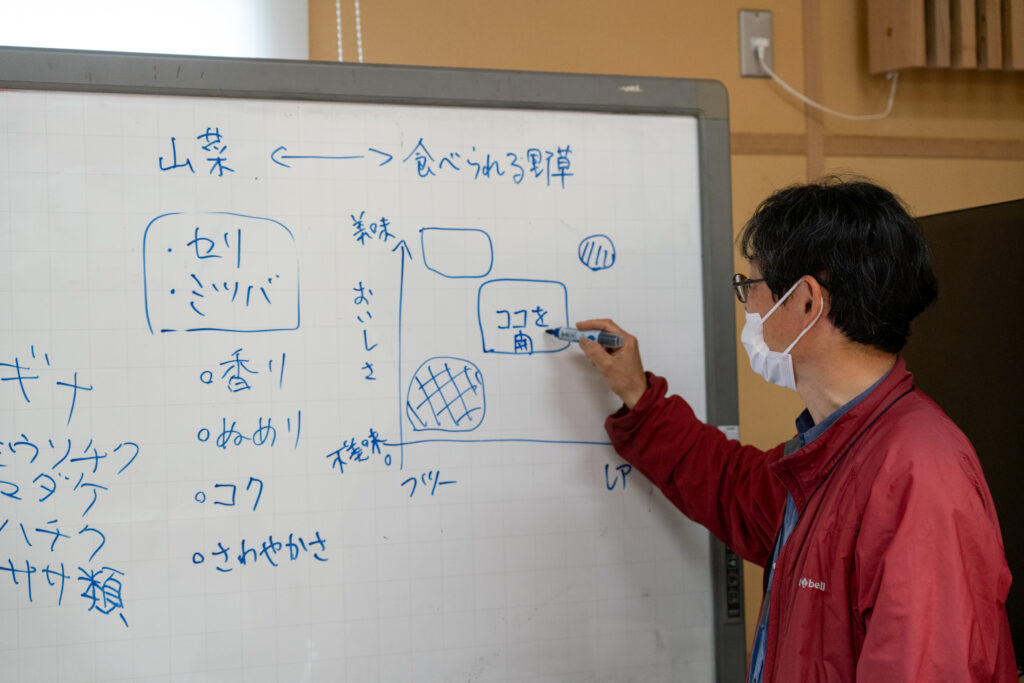 山菜 ↔ 食べられる野草
・セリ
・ミツバ
美味
おいしさ
ココを
ギナ
モウソチク
マダケ
ハチク
ササ類
○香り
○ぬめり
○コク
○さわやかさ
フリー
レア
bell